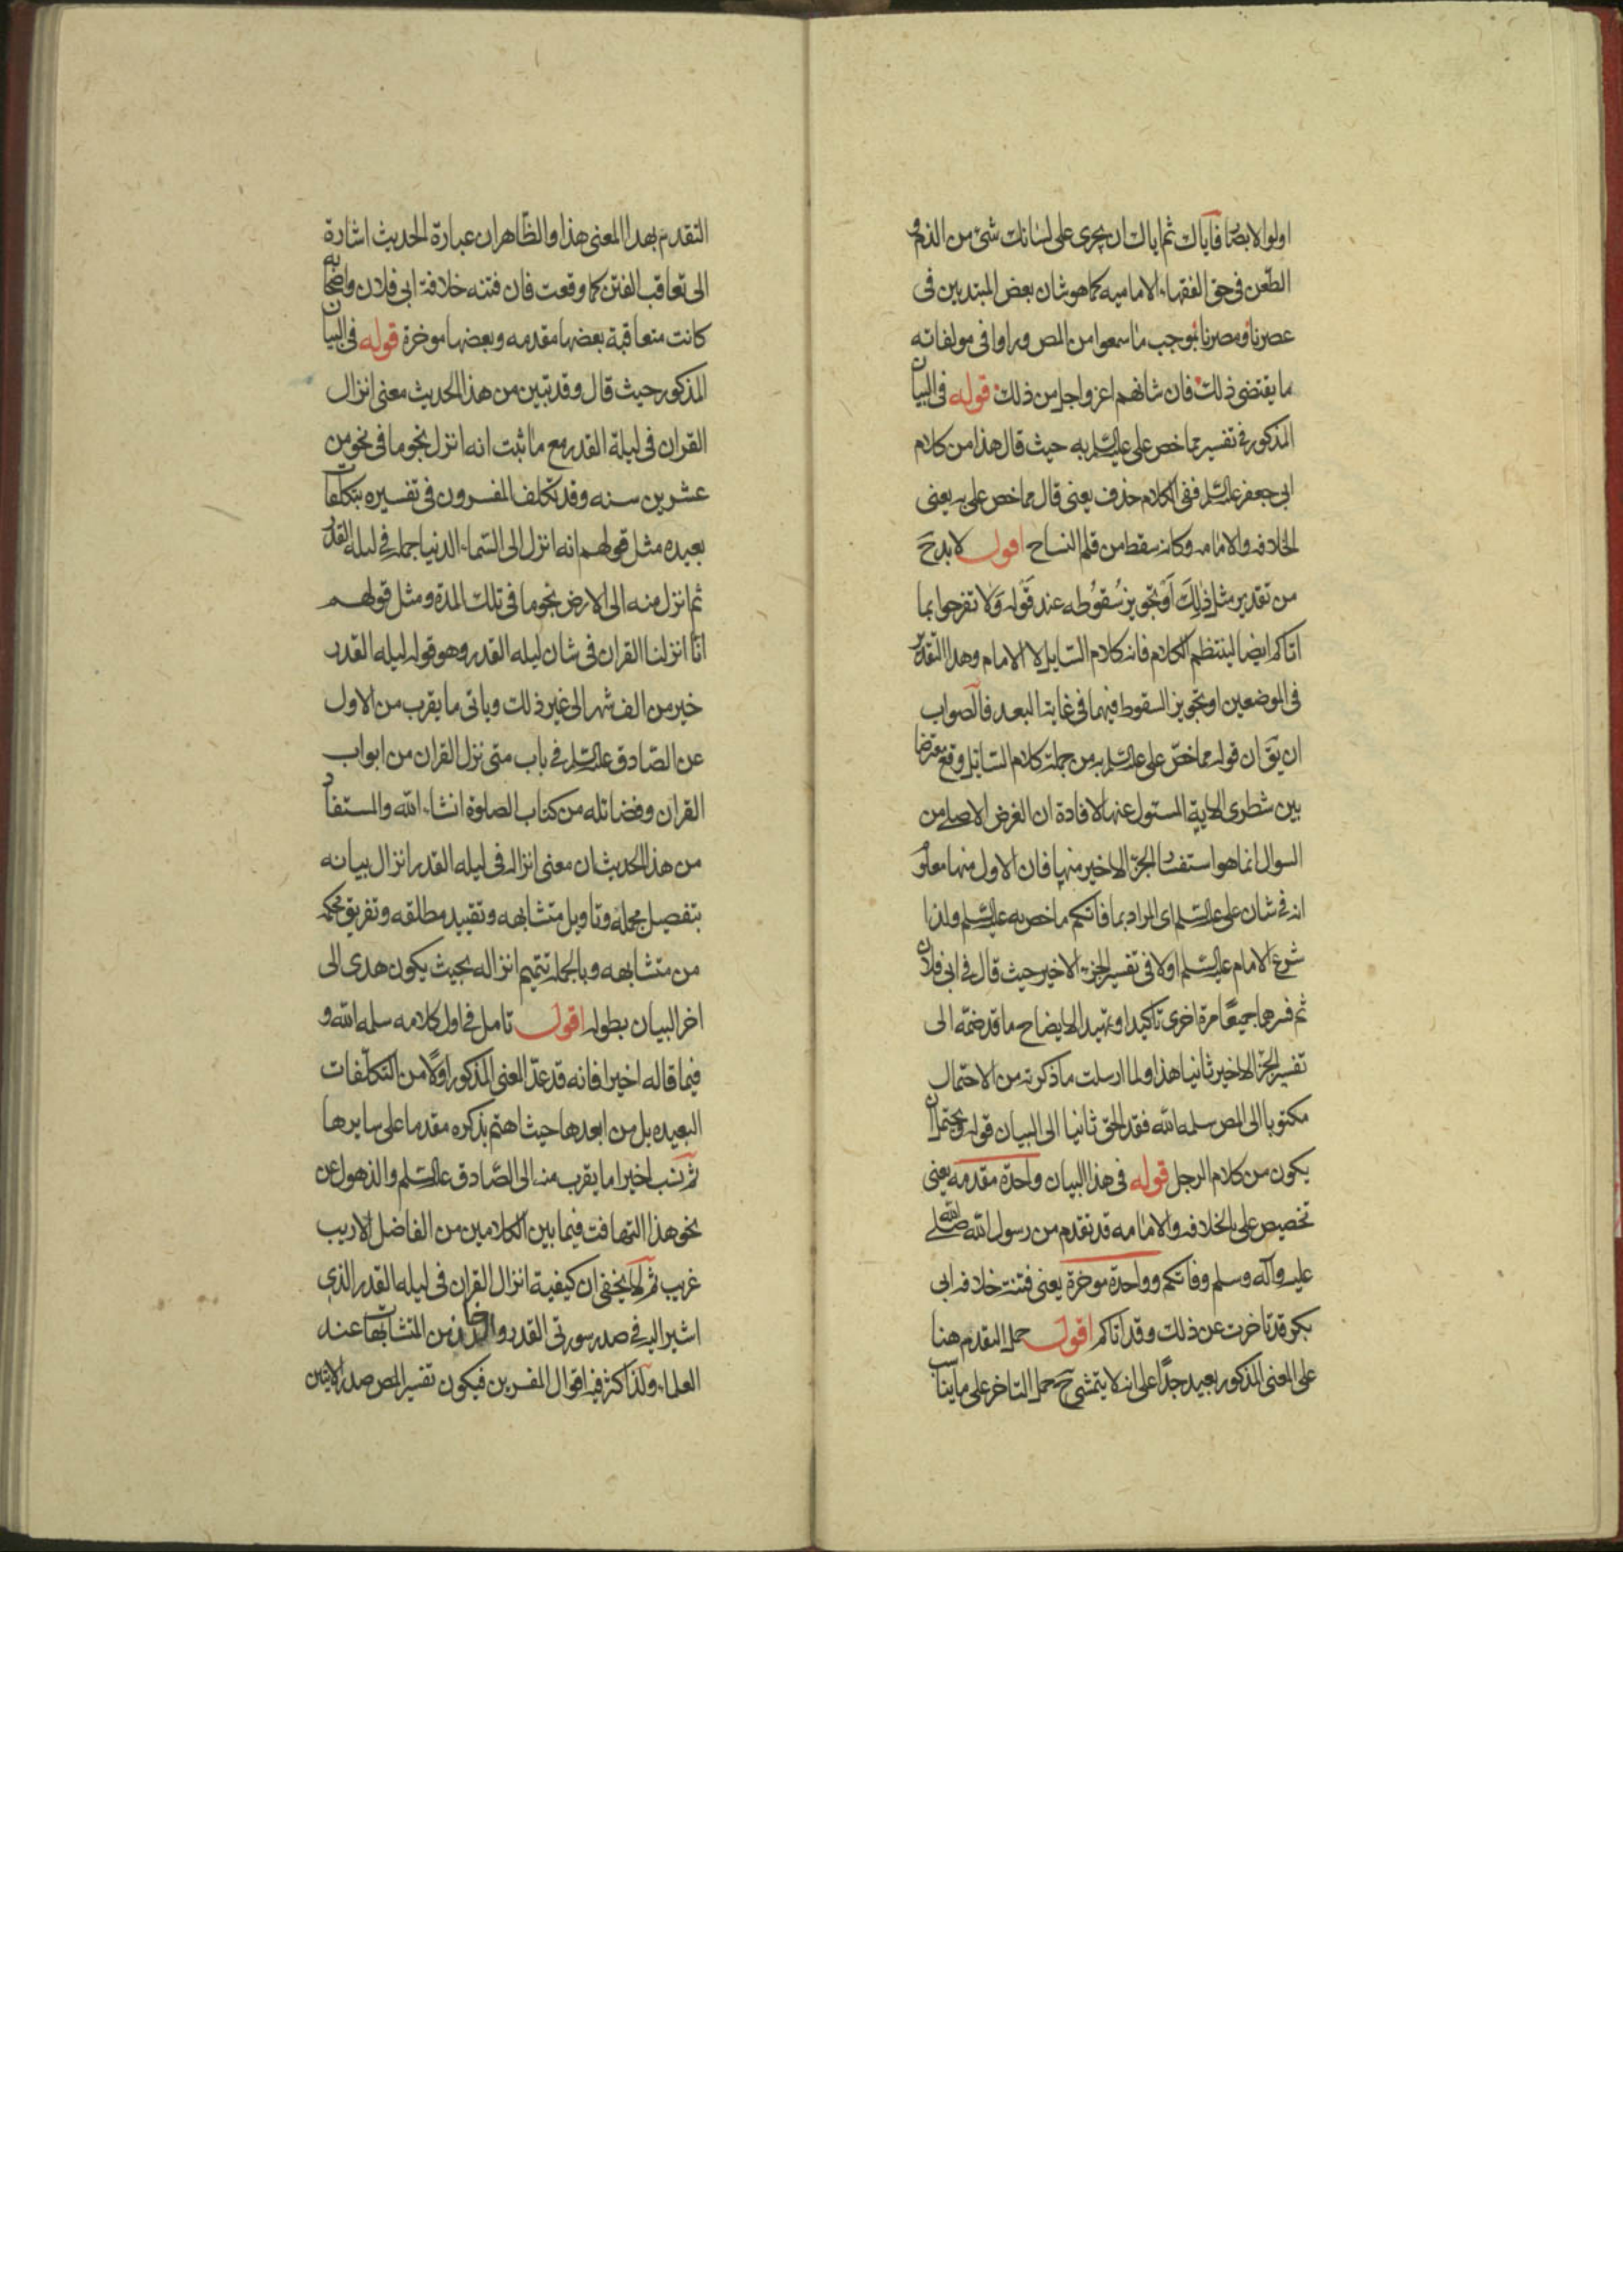 اولوا الابصار فاياك ثم اياك ان يجرى على لسانك شئ من الذم و
الطعن فى حق الفقهاء الاماميه كما هو شان بعض المبتديين فى
عصرنا ومصرنا بموجب ما سمعوا من المص وراوا فى مولفاته
ما يقتضى ذلك فان شانهم اعز واجل من ذلك قوله فى البيان
المذكور فى تفسير مما خص على عليه السلم به حيث قال هذا من كلام
ابى جعفر عليه السلم ففى الكلام حذف يعنى قال مما خص على به يعنى
الخلافه والامامه وكانه سقط من قلم النساخ اقول لا بد ح
من تقدير مثل ذلك او تجويز سقوطه عند قوله ولا تفرحوا بما
اتاكم ايضا لينتظم الكلام فانه كلام السايل لا الامام وهذا التقدير
فى الموضعين او تجويز السقوط فيهما فى غاية البعد فالصواب
ان يق ان قوله مما خص على عليه السلم به من جملة كلام السايل وقع معترضا
بين شطرى الاية المسئول عنها لافادة ان الغرض الاصلى من
السوال انما هو استفسار الجزء الاخير منها فان الاول منها معلوم
انه فى شان على عليه السلم اى المراد بما فاتكم ما خص به عليه السلم ولذا
شرع الامام عليه السلم اولا فى تفسير الجزء الاخير حيث قال فى ابى فلان
ثم فسرهما جميعا مرة اخرى تاكيدا وتمهيدا لايضاح ما قد ضمه الى
تفسير الجزء الاخير ثانيا هذا ولما ارسلت ما ذكرته من الاحتمال
مكتوبا الى المص سلمه الله فقد الحق ثانيا الى البيان قوله ويحتمل ان
يكون من كلام الرجل قوله فى هذا البيان واحدة مقدمه يعنى
تخصيص على بالخلافه والامامه قد تقدم من رسول الله صلى الله
عليه وآله وسلم وفاتكم وواحدة موخرة يعنى فتنة خلافه ابى
بكر قد تاخرت عن ذلك وقد اتاكم اقول حمل التقدم هنا
على المعنى المذكور بعيد جدا على انه لا يتمشى ح حمل التاخر على ما يناسب
التقدم بهذا المعنى هذا والظاهر ان عبارة الحديث اشارة
الى تعاقب الفتن كما وقعت فان فتنه خلافة ابى فلان واصحابه
كانت متعاقبة بعضها مقدمه وبعضها موخرة قوله فى البيان
المذكور حيث قال وقد تبين من هذا الحديث معنى انزال
القران فى ليلة القدر مع ما ثبت انه انزل نجوما فى نحو من
عشرين سنه وقد تكلف المفسرون فى تفسيره بتكلفات
بعيده مثل قولهم انه انزل الى السماء الدنيا جملة فى ليله القدر
ثم انزل منه الى الارض نجوما فى تلك المدة ومثل قولهم
انا انزلنا القران فى شان ليله القدر وهو قوله ليله القدر
خير من الف شهر الى غير ذلك وياتى ما يقرب من الاول
عن الصادق عليه السلم فى باب متى نزل القران من ابواب
القران وفضائله من كتاب الصلوة انشاء الله والمستفاد
من هذا الحديث ان معنى انزاله فى ليله القدر انزال بيانه
بتفصيل مجمله وتاويل متشابهه وتقييد مطلقه وتفريق محكمه
من متشابهه وبالجملة تتميم انزاله بحيث يكون هدى الى
اخر البيان بطوله اقول تامل فى اول كلامه سلمه الله و
فيما قاله اخيرا فانه قد عد المعنى المذكور اولا من التكلفات
البعيده بل من ابعدها حيث اهتم بذكره مقدما على سايرها
ثم نسب اخيرا ما يقرب منه الى الصادق عليه السلم والذهول عن
نحو هذا التهافت فيما بين الكلامين من الفاضل الاريب
غريب ثم لا يخفى ان كيفية انزال القران فى ليله القدر الذى
اشير اليه فى صدر سورتى القدر والدخان من المتشابهات عند
العلماء ولذا كثر فيه اقوال المفسرين فيكون تفسير المص صدر الايتين